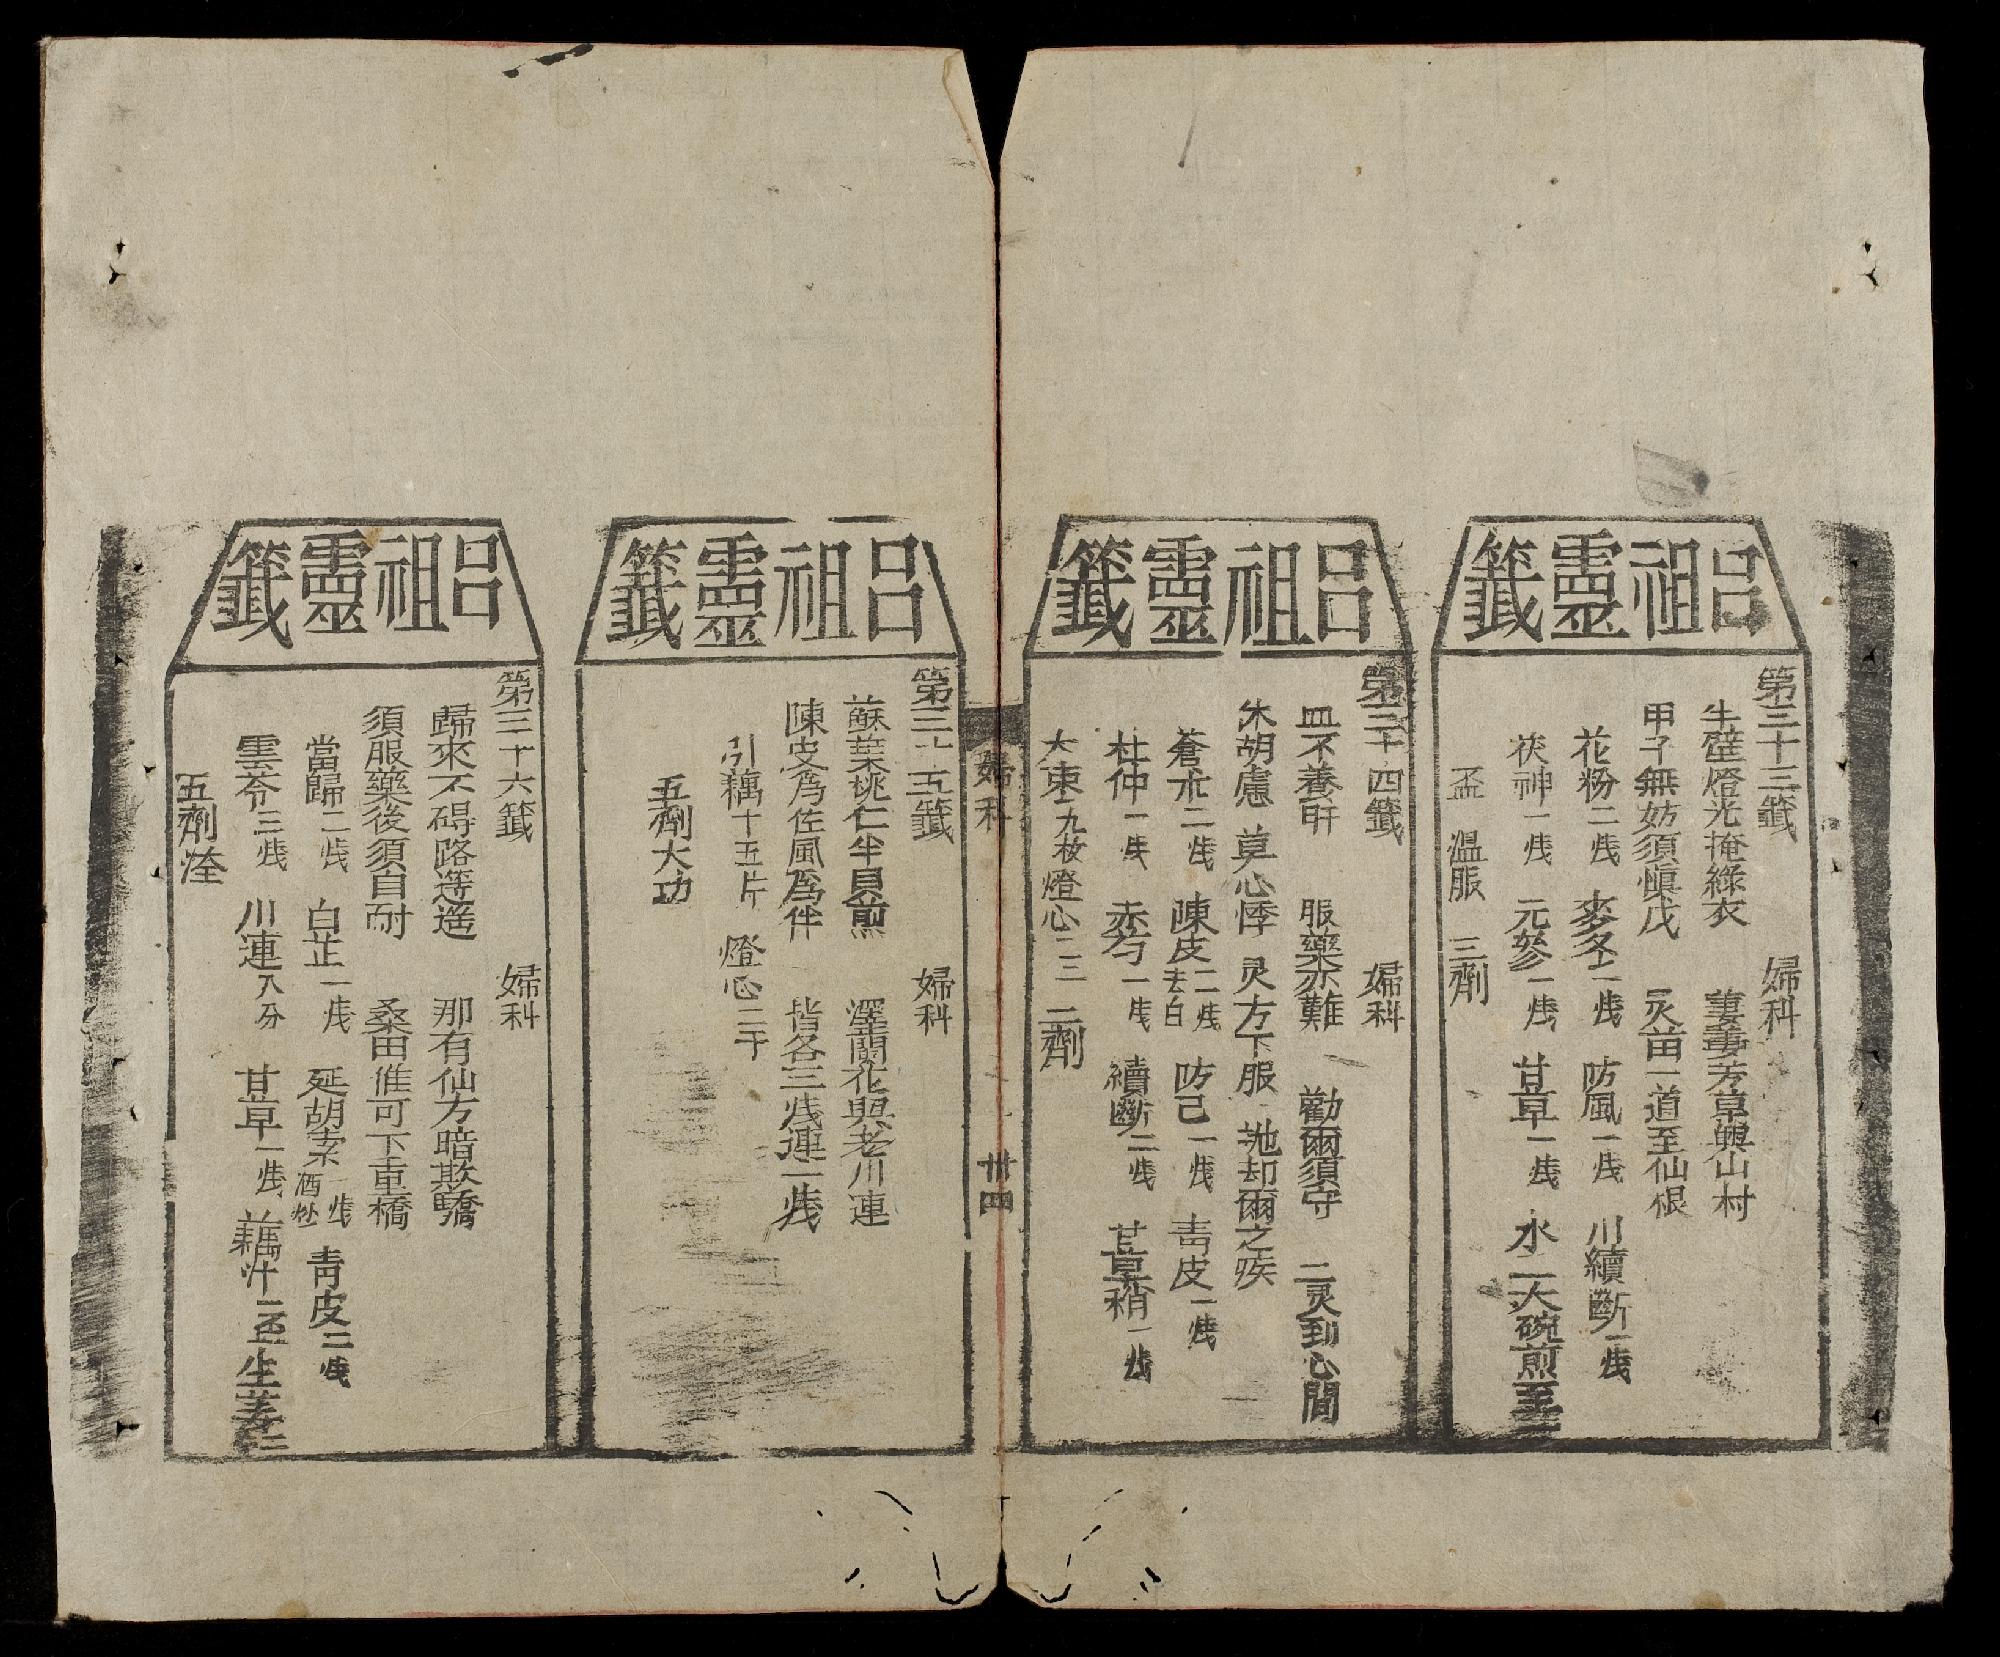 呂祖靈籤
第三十三籤 婦科
半壁燈光掩綠衣 萋萋芳草與山村
甲子無妨須慎戊 灵苗一道至仙根
花粉二㦮 麥冬二㦮 防風一㦮 川續斷一㦮
茯神一㦮 元參一㦮 甘草一㦮 水二大碗煎至三
盃 溫服 三劑
呂祖靈籤
第三十四籤 婦科
血不養肝 服藥亦難 勸爾須守 二灵到心間
朱胡慮 莫心悸 灵方下服 却爾之疾
蒼朮二㦮 陳皮二㦮去白 防己一㦮 靑皮一㦮
杜仲一㦮 赤芍一㦮 續斷二㦮 甘草稍一㦮
大棗九枚 燈心二三 二劑
婦科
卅四
呂祖靈籤
第三十五籤 婦科
蘇葉桃仁半貝煎 澤蘭花與老川連
陳皮爲佐風爲伴 皆各三㦮連一㦮
引藕十五片 燈心二十
五劑大功
呂祖靈籤
第三十六籤 婦科
歸來不碍路遥遥 那有仙方暗欺驕
須服藥後須自耐 桑田僬可下重橋
當歸二㦮 白芷一㦮 延胡索一㦮酒炒 靑皮二㦮
雲苓三㦮 川連八分 甘草一㦮 藕汁一盃 生姜三
五劑痊